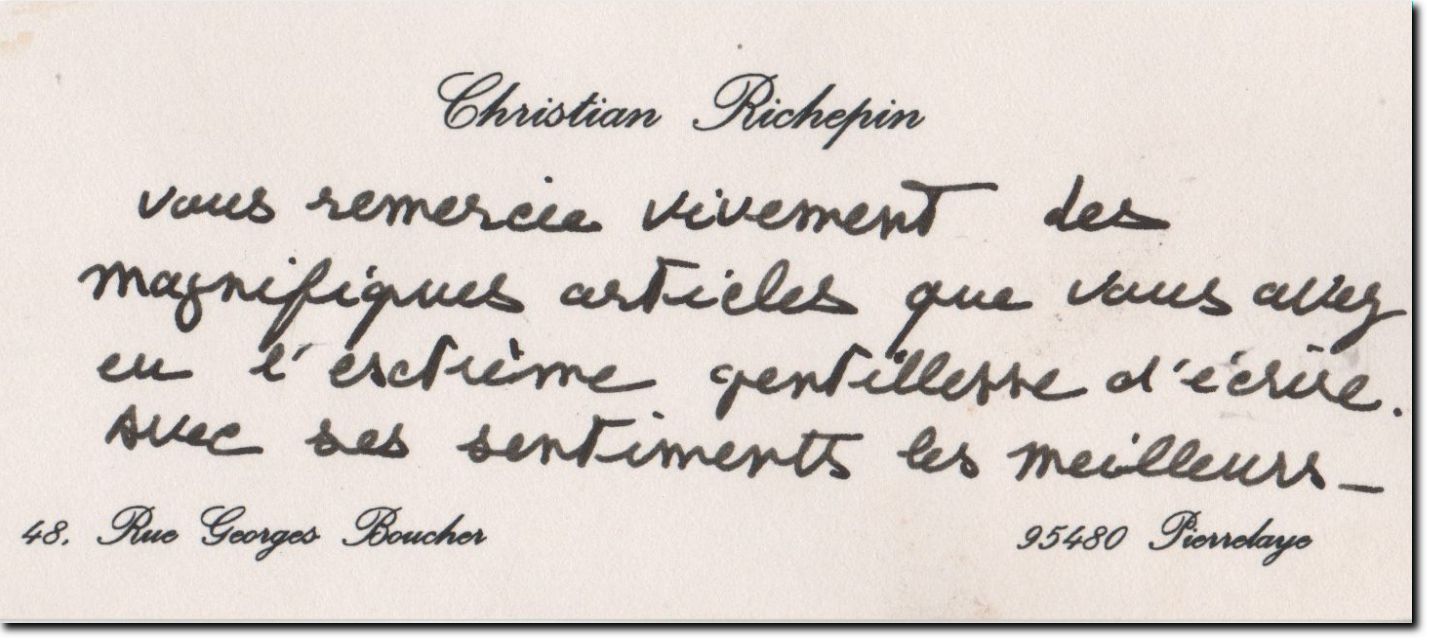 Christian Richepin
vous remercie vivement des
magnifiques articles que vous avez
eu l'extrème gentillesse d'écrire.
Avec ses sentiments les meilleurs_
48. Rue Georges Boucher 95480 Pierrelaye